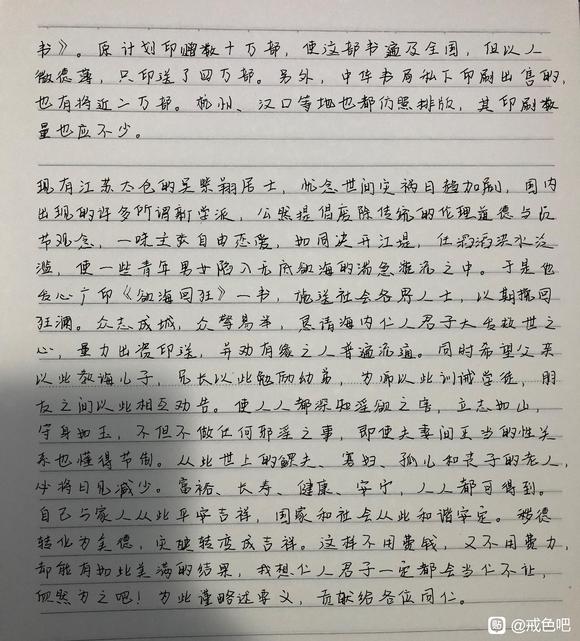 书》。原计划印赠数十万部，使这部书遍及全国，但以人
微德薄，只印送了四万部。另外，中华书局私下印刷出售的，
也有将近二万部。杭州、汉口等地也都仿照排版，其印刷数
量也应不少。
现有江苏太仓的吴紫翔居士，忧念世间灾祸日趋加剧，国内
出现的许多所谓新学派，公然提倡废除传统的伦理道德与贞
节观念，一味主张自由恋爱，如同决开江堤，任滔滔洪水泛
滥，使一些青年男女陷入无底欲海的湍急漩流之中。于是他
发心广印《欲海回狂》一书，施送社会各界人士，以期挽回
狂澜。众志成城，众擎易举，恳请海内仁人君子大发救世之
心，量力出资印送，并劝有缘之人普遍流通。同时希望父亲
以此教诲儿子，兄长以此勉励幼弟，为师以此训诫学徒，朋
友之间以此相互劝告。使人人都深知淫欲之害，立志如山，
守身如玉，不但不做任何邪淫之事，即使夫妻间正当的性关
系也懂得节制。从此世上的鳏夫、寡妇、孤儿和丧子的老人，
必将日见减少。富裕、长寿、健康、安宁，人人都可得到。
自己与家人从此平安吉祥，国家和社会从此和谐安定。秽德
转化为美德，灾殃转变成吉祥。这样不用费钱，又不用费力，
却能有如此美满的结果，我想仁人君子一定都会当仁不让，
欣然为之吧！为此谨略述要义，贡献给各位同仁。
贴 @戒色吧